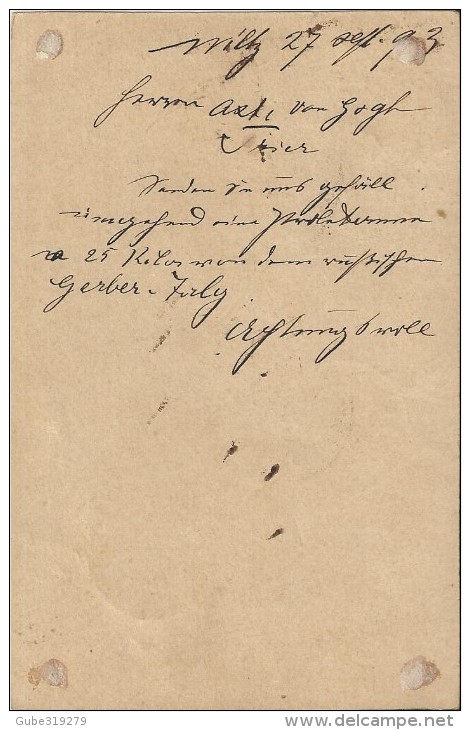 Wiltz 27 Sept. 93
Herren Axt, van Gogh
Trier
Senden Sie uns gefäll.
umgehend eine Probetonne
25 Kilos von dem russischen
Gerber-Talg.
Achtungsvoll
Gube319279
© www.delcampe.net